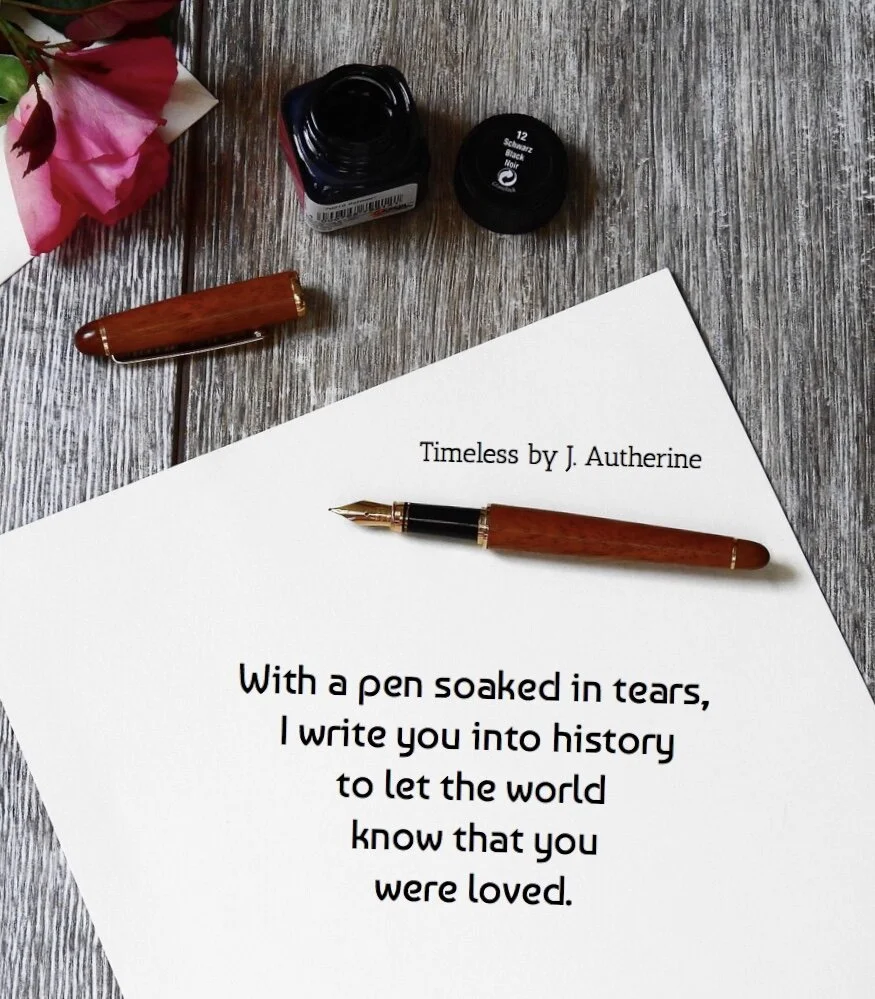 12
Schwarz
Black
Noir
Timeless by J. Autherine
With a pen soaked in tears,
I write you into history
to let the world
know that you
were loved.